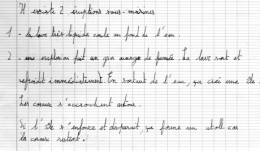 Il existe 2 éruptions sous-marines
1 - la lave très liquide coule au fond de l'eau.
2 - une explosion fait un gros nuage de fumée. La lave sort et
refroidit immédiatement. En sortant de l'eau, ça crée une île
Les coraux s'accrochent autour.
Si l'île s'enfonce et disparaît, ça forme un atoll car
les coraux restent.